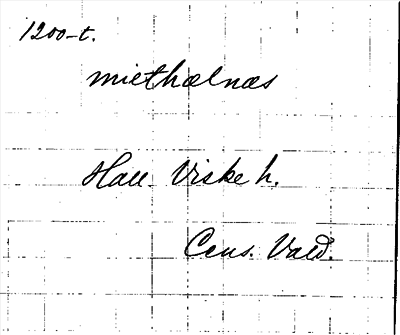 1200-t.
miethælnæs
Hall. Viske h.
Cens. Vald.